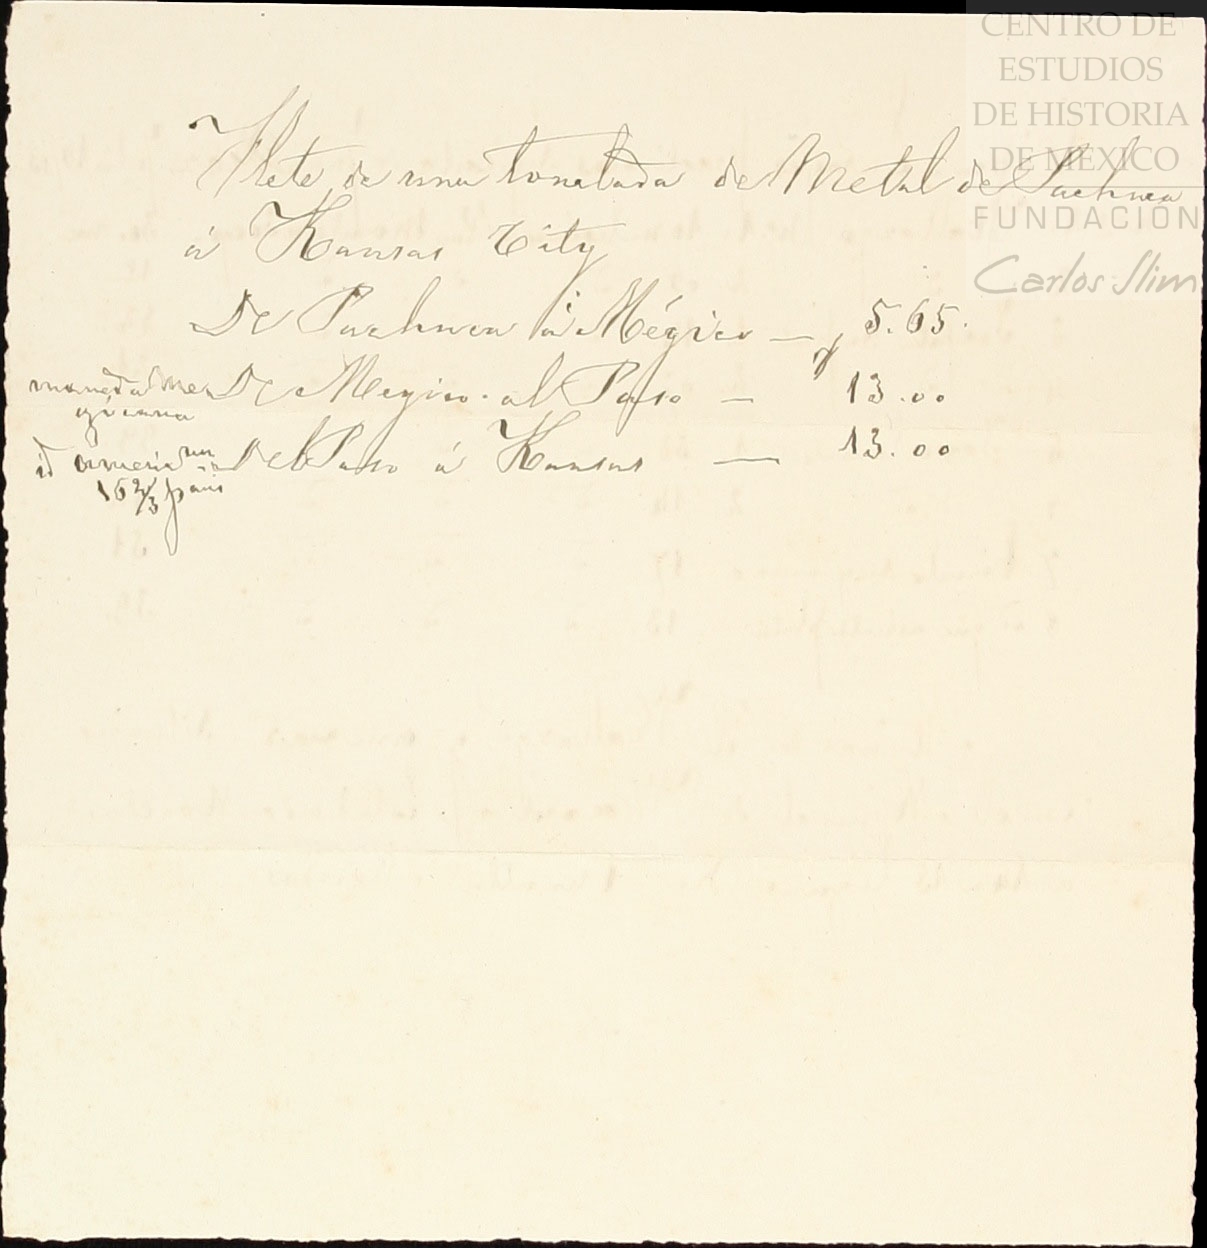 CENTRO DE
ESTUDIOS
DE HISTORIA
DE MÉXICO
FUNDACIÓN
Carlos Slim
Flete de una tonelada de Metal de Pachuca
á Kansas City
De Pachuca á Mégico — $ 5.65.
moneda Me De Megico al Paso — 13.00
gicana
id americana Del Paso á Kansas — 13.00
16 2/3